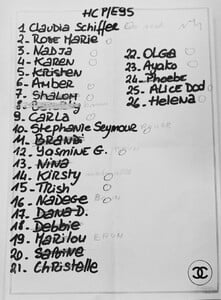 HCP/E95
1 Claudia Schiffer
2- Rose Marie
3- NadJa
4- Karen
5- Kristen
6- Amber
7- Shalom
8-
9- CARLA
10- Stephanie Seymour
11- BRANDI
12- Yasmine G.
13- Nina
14- Kirsty
15- Trish
16- Nadege
17- Dana D.
18- Debbie
19- Marilou
20- Sabine
21- Christelle
22- OLGA
23- Ayako
24- Phoebe
25- ALICE Dod
26- Helena